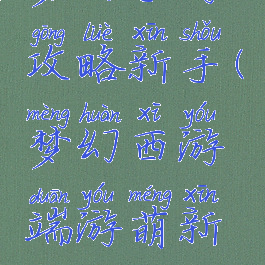 gōng lüè xīn shǒu
攻略新手(
mèng huàn xī yóu
梦幻西游
duān yóu méng xīn
端游萌新